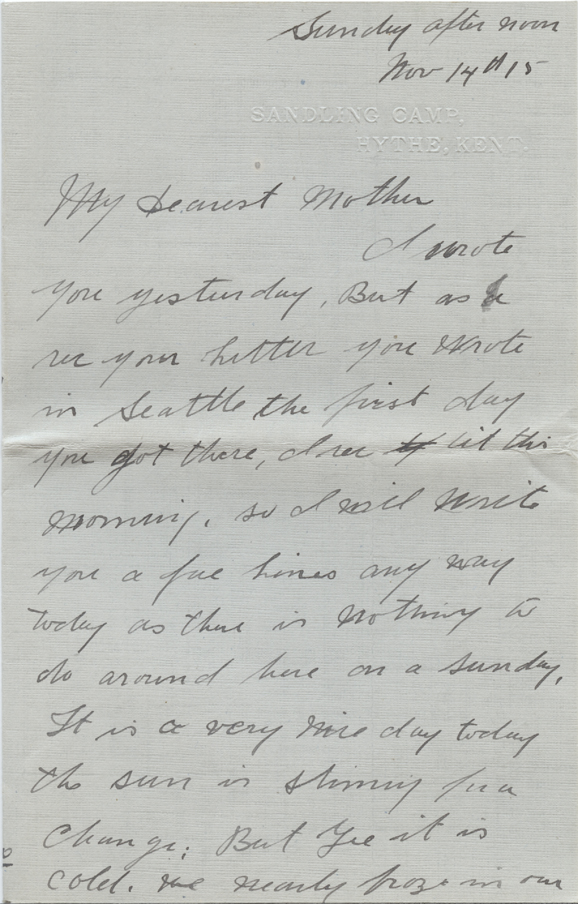 Sunday after noon
Nov 14th 15
SANDLING CAMP,
HYTHE, KENT.
My Dearest Mother
I wrote
you yesterday, But as I
rec your Letter you Wrote
in Seattle the first day
you got there, I rec it this
morning, so I will Write
you a few Lines any way
today as there is Nothing to
do around here on a Sunday,
It is a very Nice day today
the sun is shining for a
Change. But Gee it is
Cold. we nearly froze in our